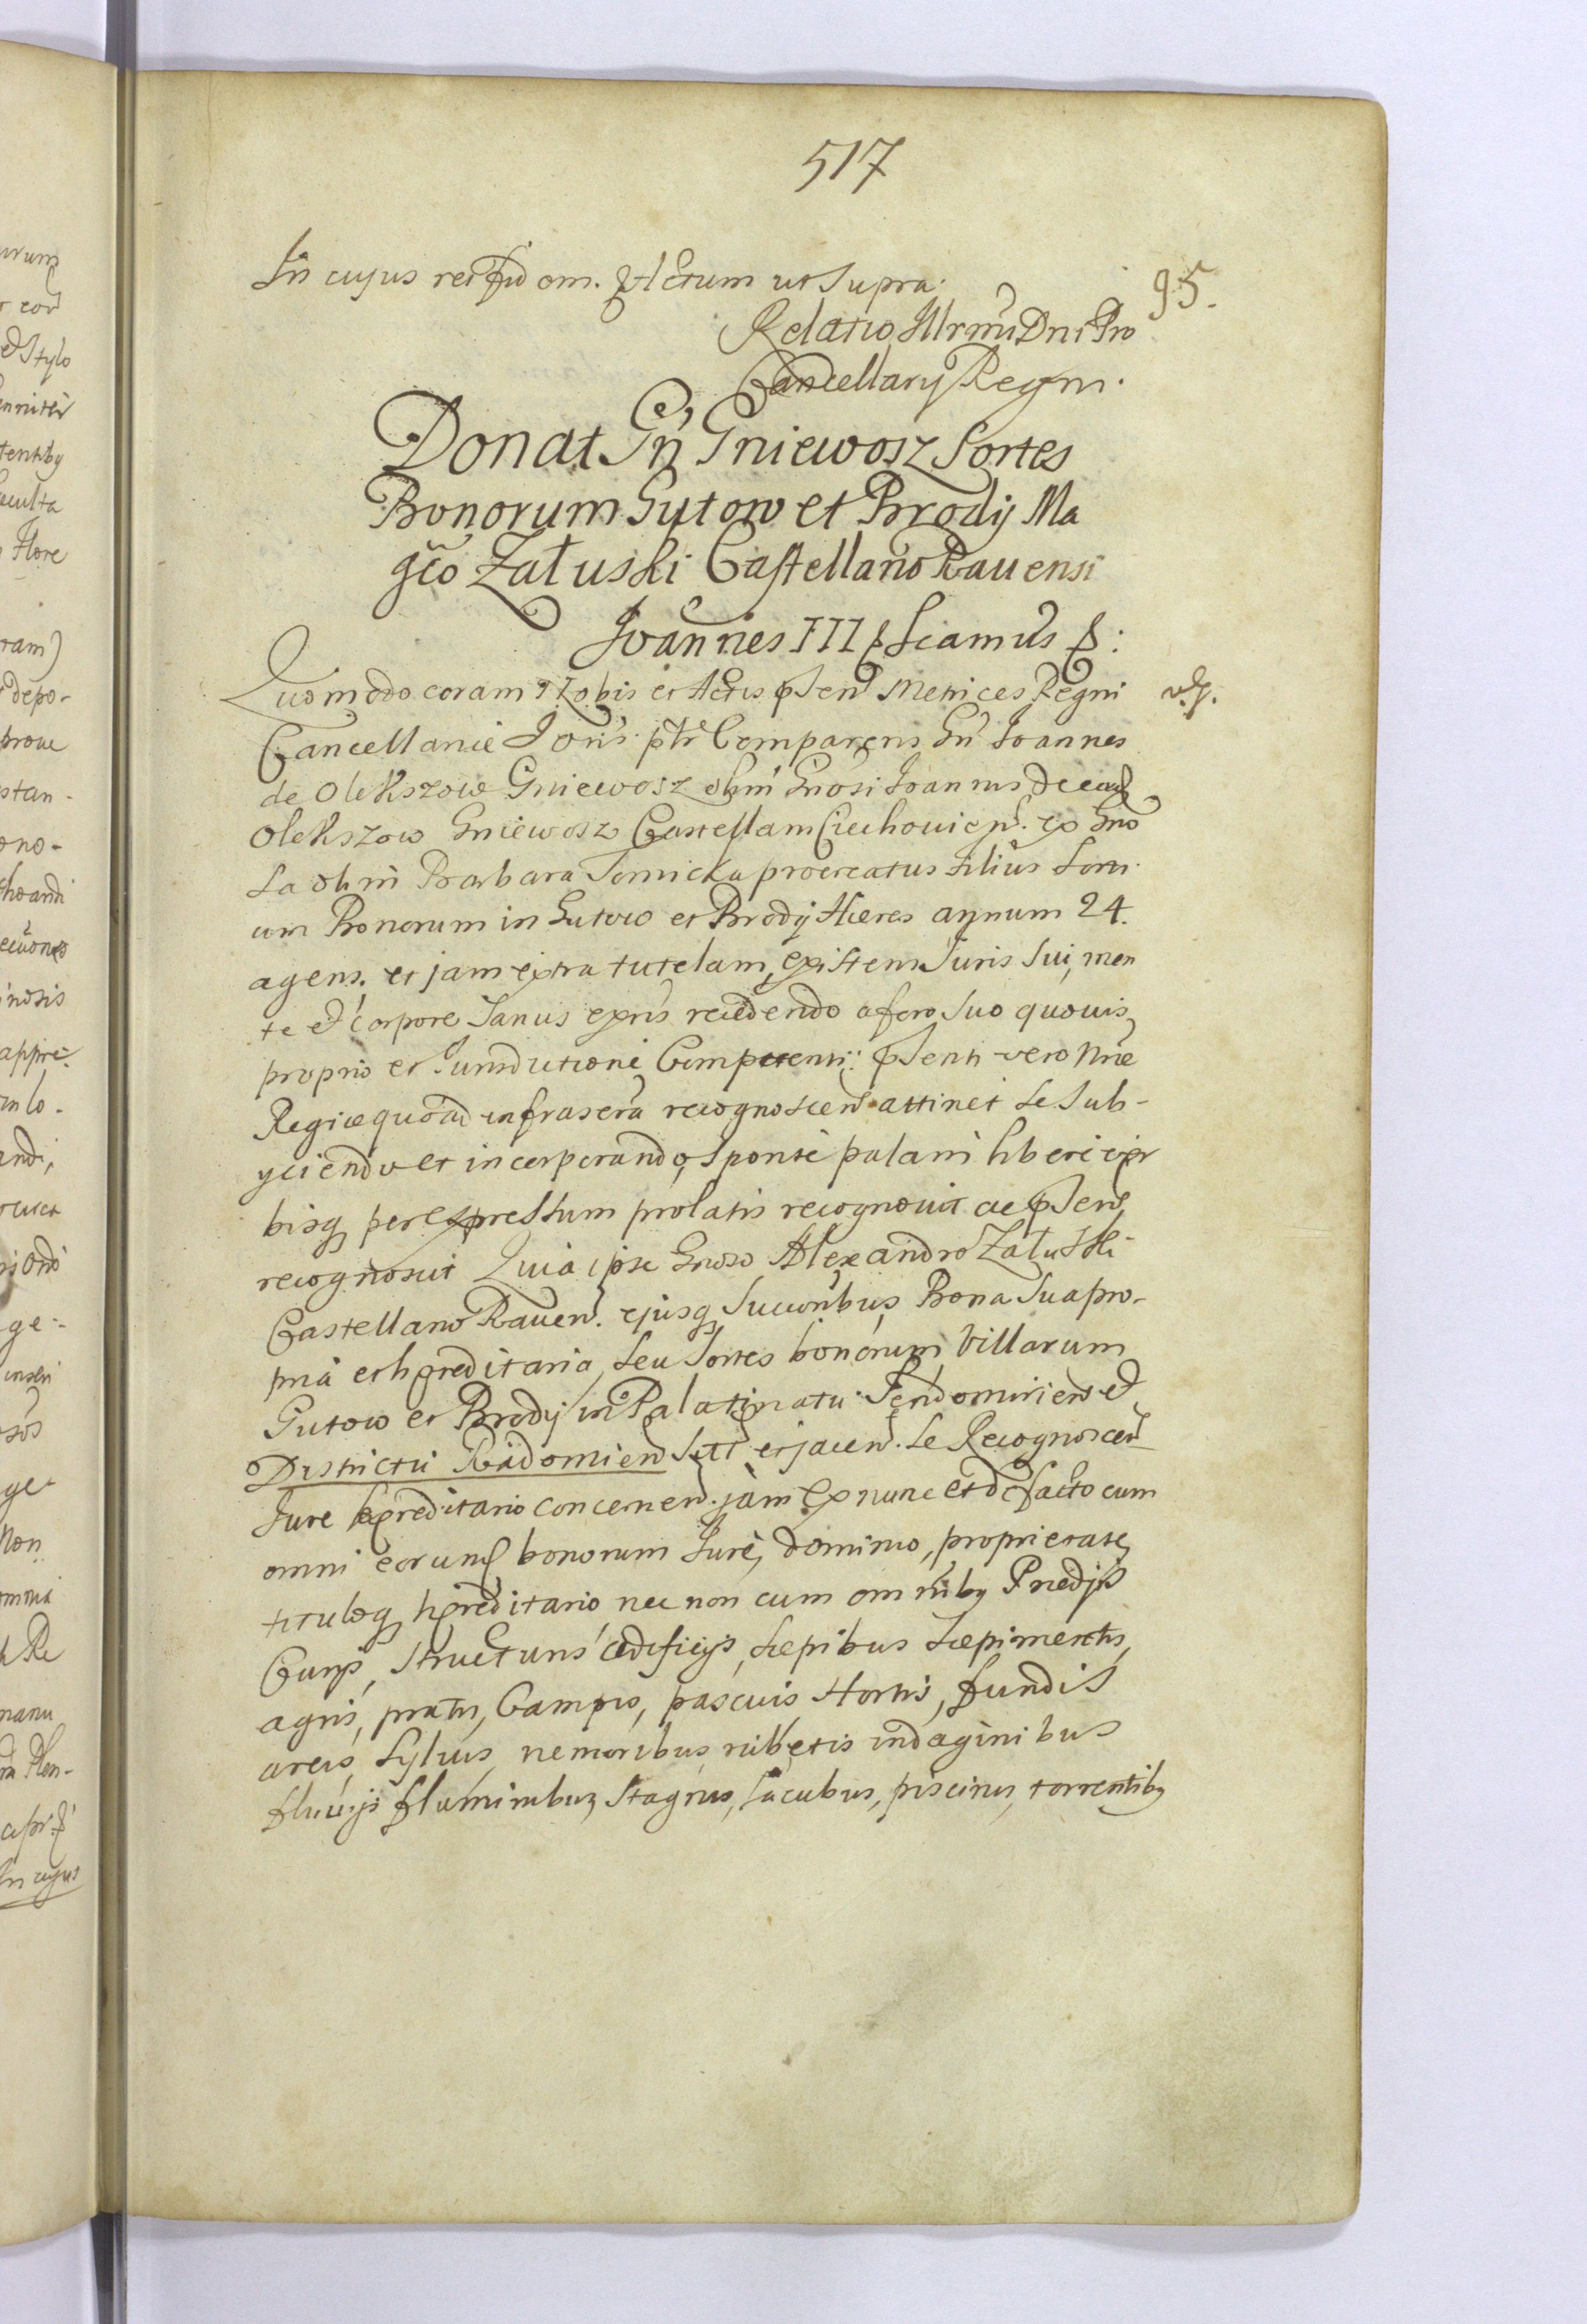 517
In cujus rei fid om. & Actum ut Supra.
95.
Relatio Illrmi Dni Pro
Cancellarij Regni.
Donat Gn Gniewosz Sortes
Bonorum Gutow et Brody Ma
gco Załuski Castellano Rauensi
Joannes III & Sciamus &:
Quomodo coram Nobis et Actis pnsen Metrices Regni
Cancellariæ Joris ptr Comparens Gn Joannes
de Olekszow Gniewosz olim Gnosi Joannis de ead
Olekszow Gniewosz Castellani Czechouien. ex Gno
sa olim Barbara Tomicka procreatus filius Sorti
um Bonorum in Gutow et Brody Hæres annum 24.
agens. et jam extra tutelam, existens Juris Sui, men
te et corpore Sanus exprs recedendo a foro Suo quouis
proprio et Jurisdictione Competenti: psenti vero Nræ
Regiæ quoad infrascra recognoscen attinet Se Sub-
yciendo et incorporando, Sponte palam libere expr
bisq per expressum prolatis recognouit ac psen
recognoscit Quia ipse Gnoso Alexandro Załuski
Castellano Rauen. ejusq Succoribus Bona Sua pro-
pria et hæreditaria, Seu Sortes bonorum Villarum
Gutow et Brody in Palatinatu Sendomirien et
Districtu Radomien Sitt et jacen. Se Recognoscen
Jure hæreditario concernen. jam ex nunc et de facto cum
omni eorund bonorum Jure, dominio, proprietate,
tituloq hæreditario, nec non cum omniby Prædijs
Curijs, Structuris ædificijs, Sepibus Sæpimentis,
agris, pratis, Campis, pascuis Hortis, fundis
areis, Syluis, nemoribus, rubetis indaginibus
fluuijs fluminibus Stagnis, lacubus, piscinis, torrentiby